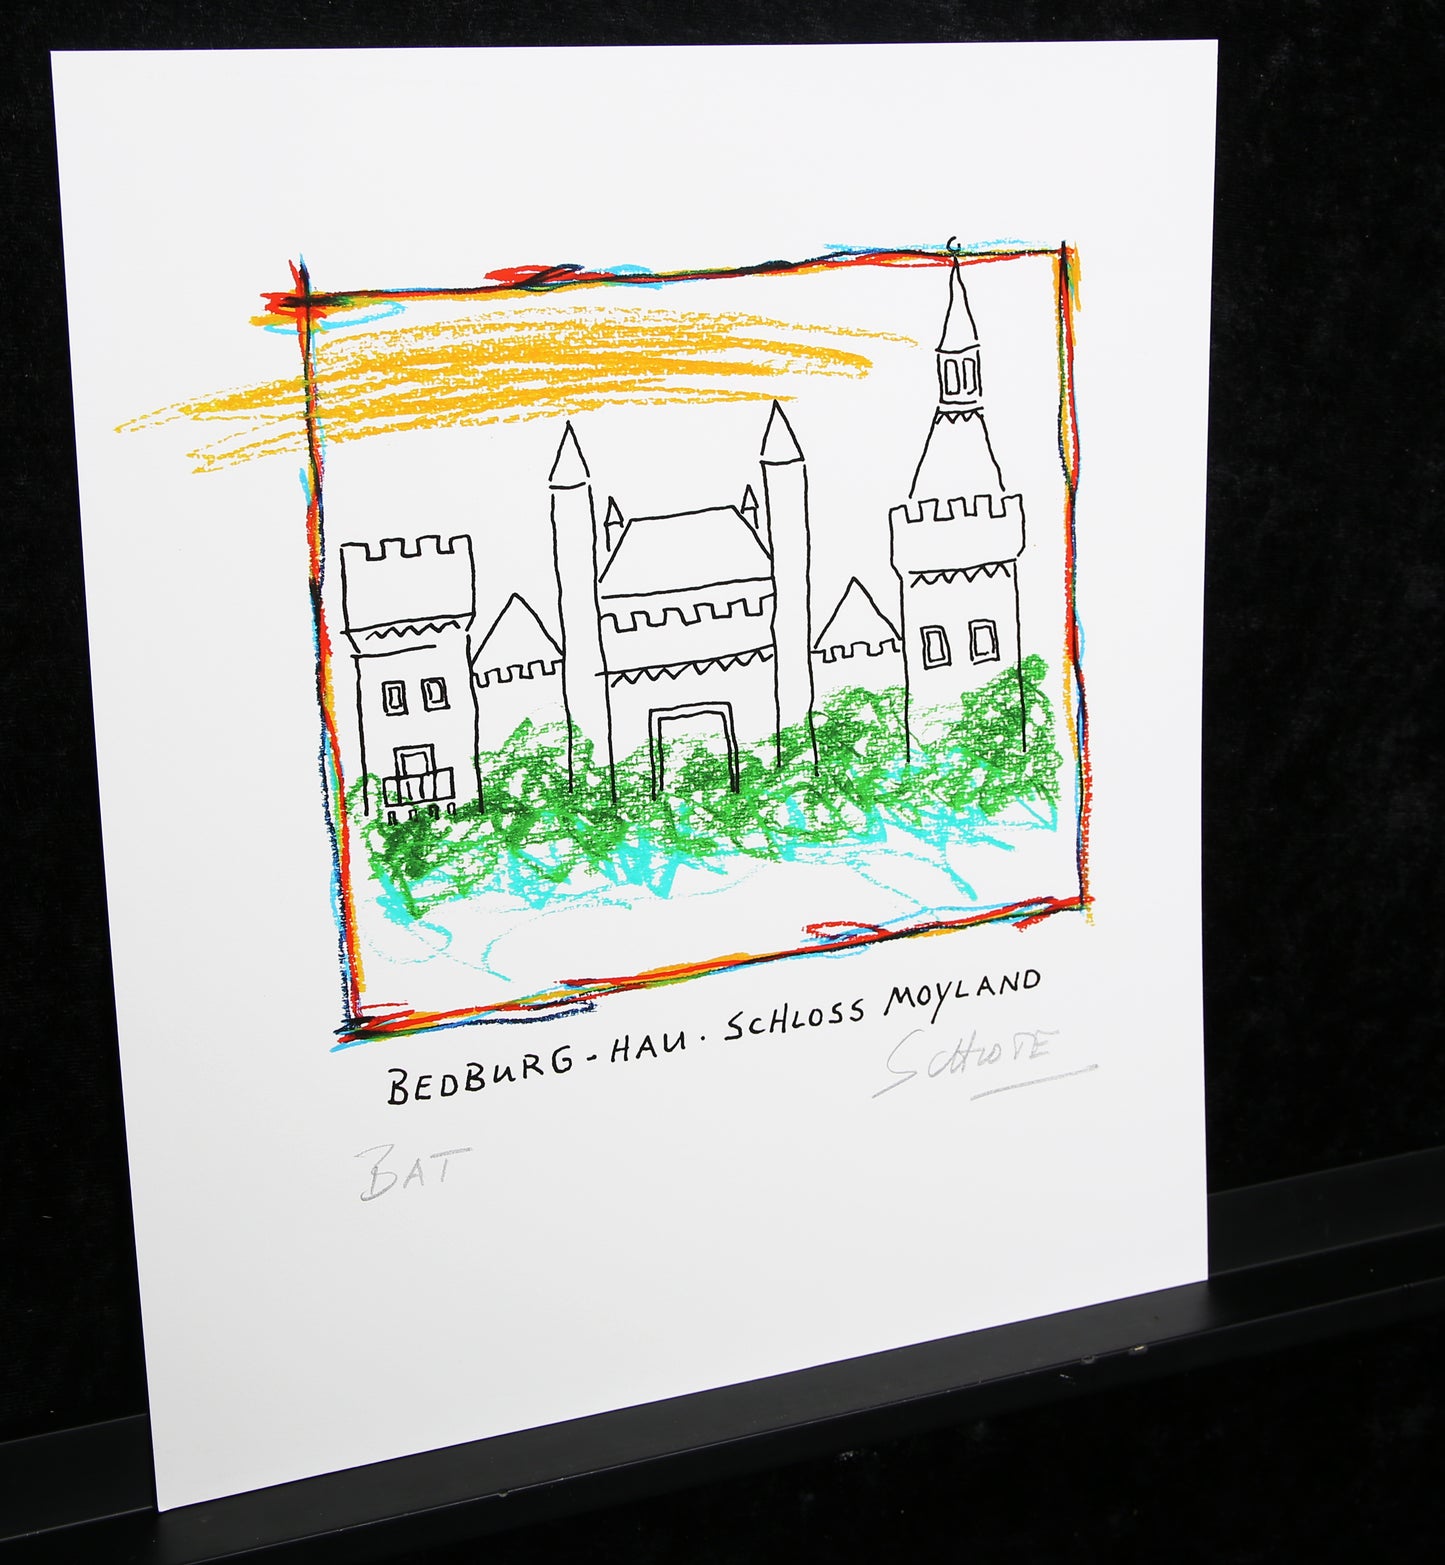 BEDBURG-HAU. SCHLOSS MOYLAND
SCHLOTE
BAT